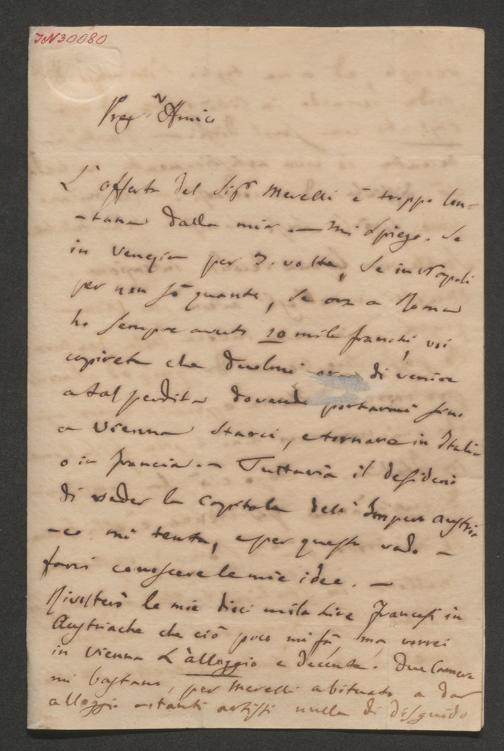 IN 30080
Preg.n Amico
L'offerta del Sigr Merelli è troppo lon-
-tana dalla mia — Mi spiego. Se
in Venezia per 3. volte, Se in Napoli
per non sò quante, Se ora a Roma
ho sempre avuto 10 mila franchi, voi
capirete che duolmi di venire
a tal perdita dovendo portarmi sino
a Vienna starci, e tornare in Italia
o in Francia. — Tuttavia il desiderio
di veder la Capitale dell'Impero Austria-
-co mi tenta, e per questo vado —
farvi conoscere le mie idee. —
le mie dieci mila Lire Francesi in
Austriache che ciò poco mi fà, ma vorrei
in Vienna L'alloggio e decente. Due Camere
mi bastano, per Merelli abituato a dar
alloggio a tanti artisti nulla di